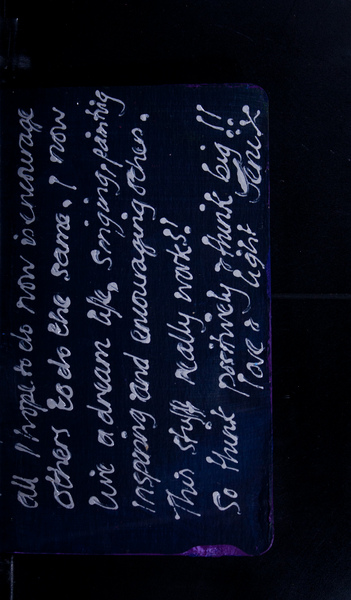 all I hope to do now is encourage
others to do the same. I now
live a dream life, singing, painting
inspiring and encouraging others.
This stuff really works!
So think positively & think big!!
love & light